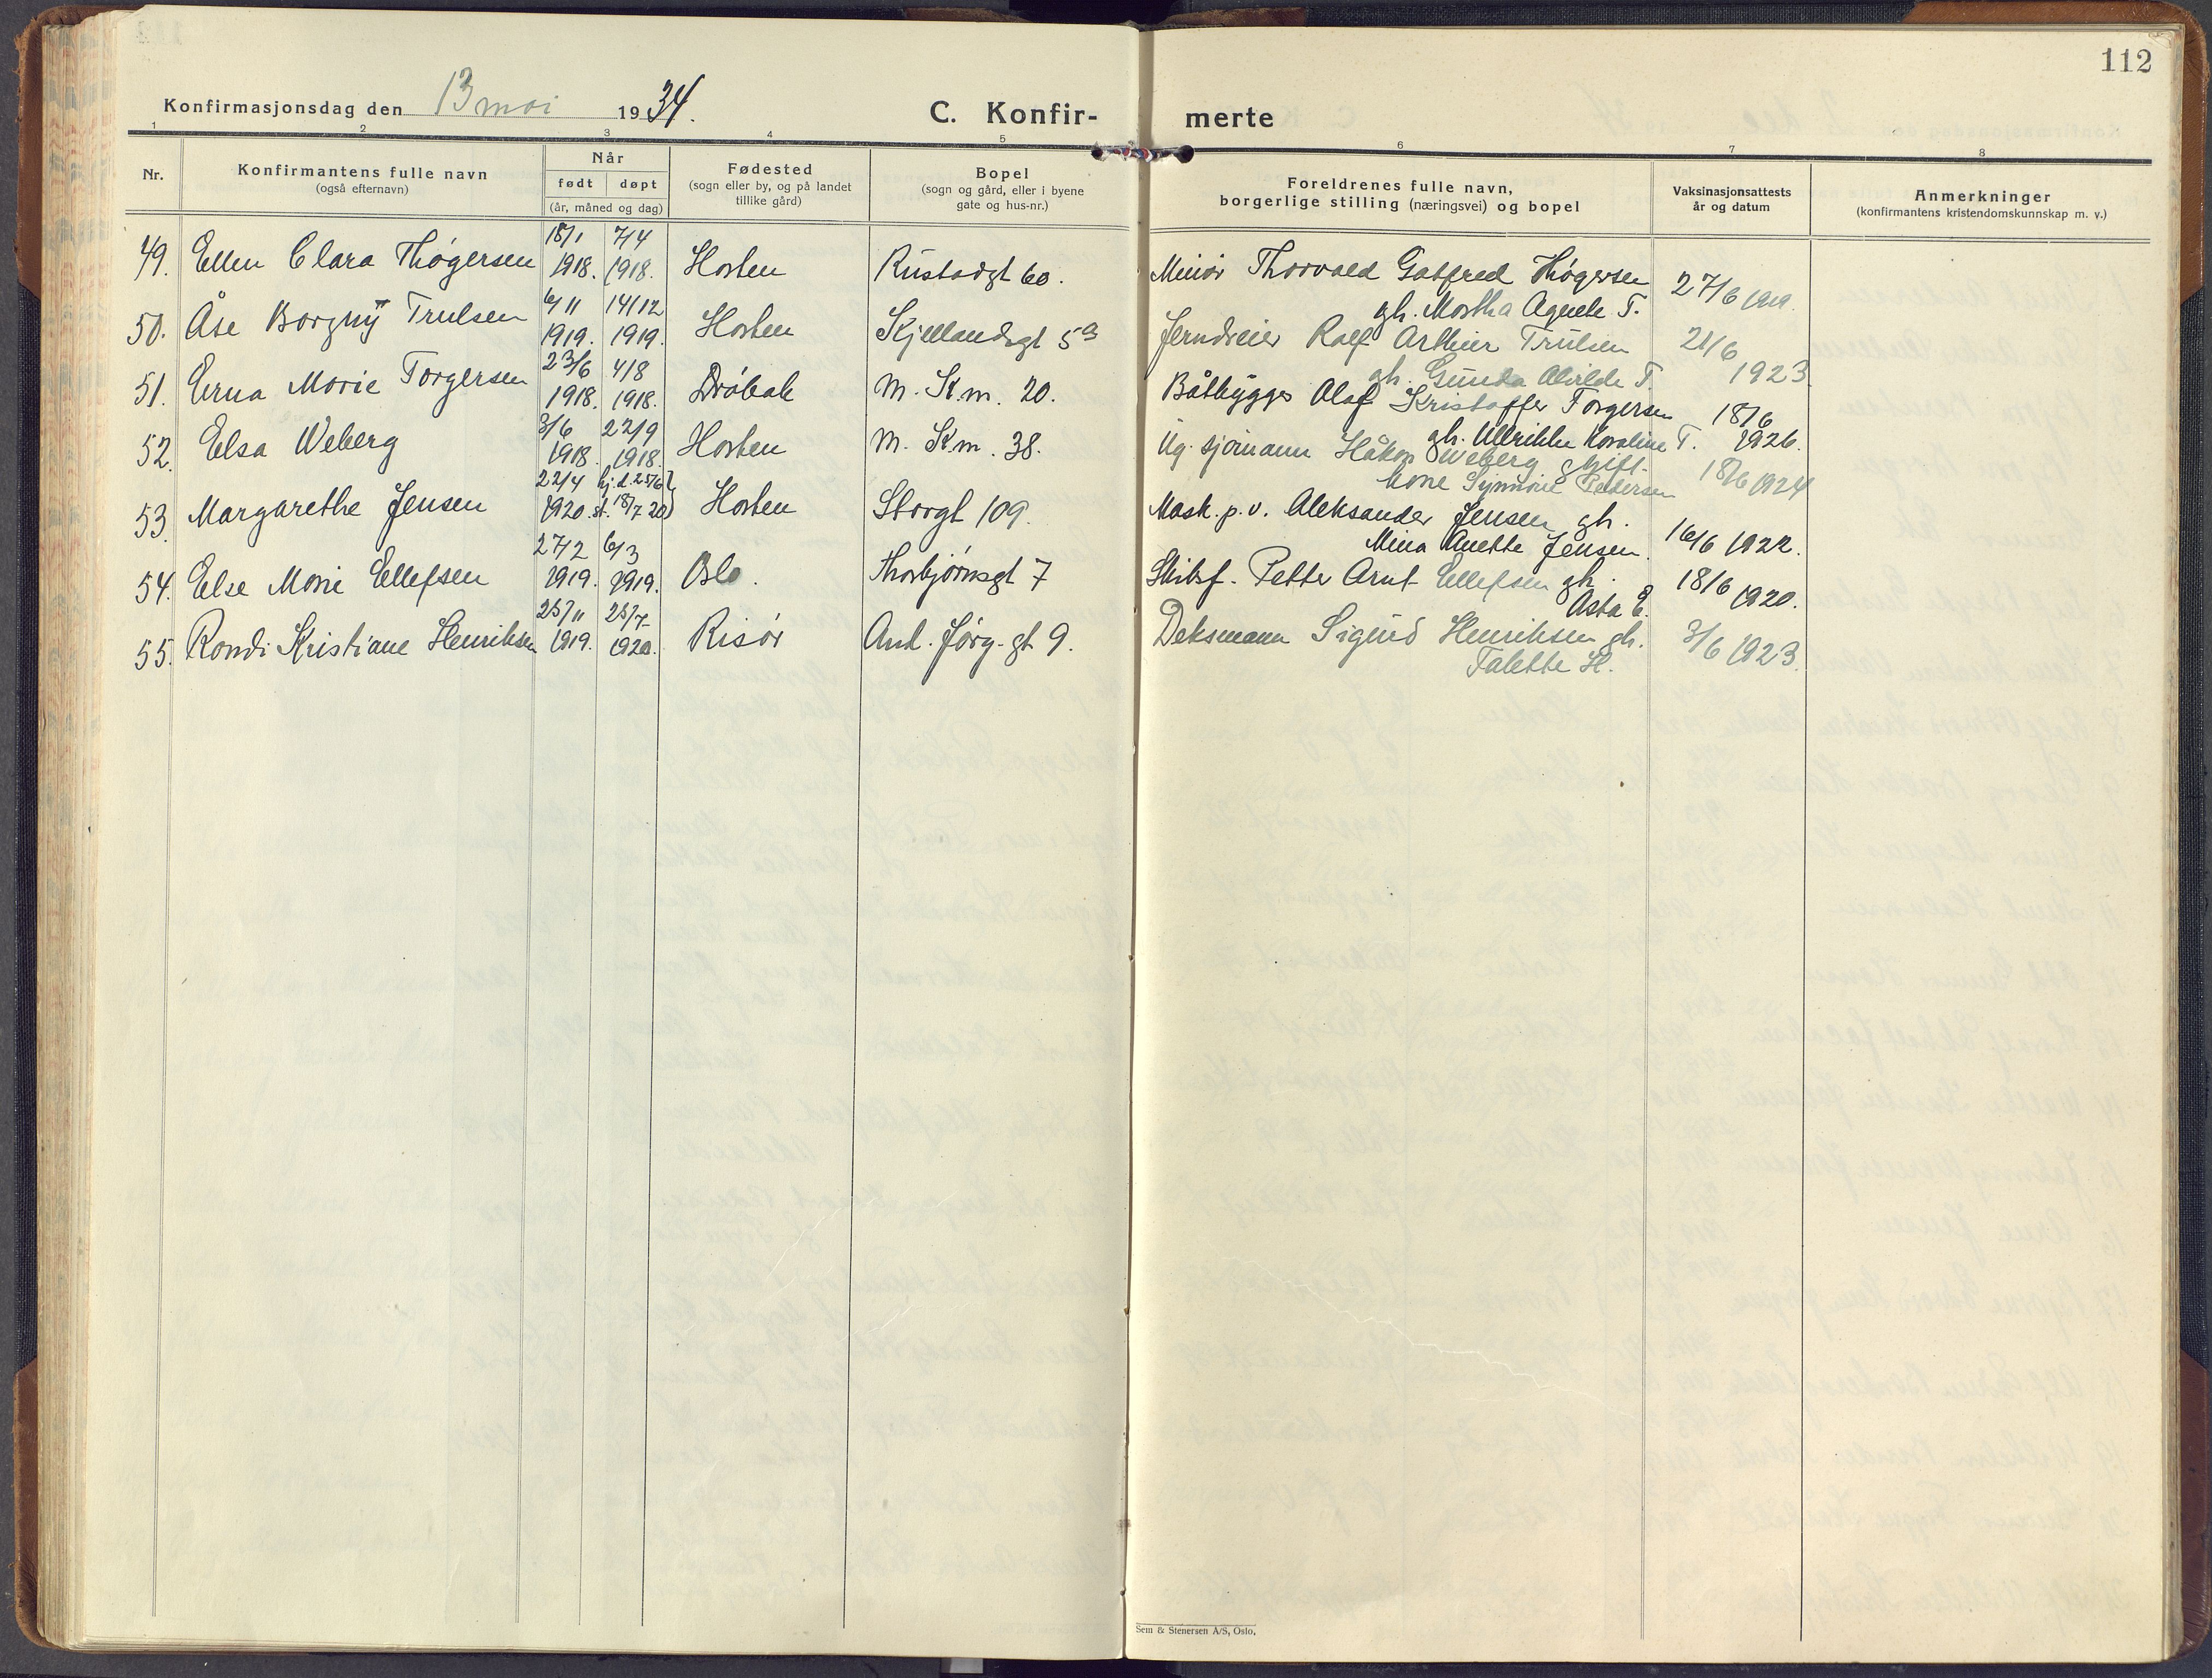 112
Konfirmasjonsdag den 13 mai 1934.
C. Konfir- merte
1 2 3 4 5 6 7 8
Nr.
Konfirmantens fulle navn
(også efternavn)
Når
født døpt
(år, måned og dag)
Fødested
(sogn eller by, og på landet
tillike gård)
Bopel
(sogn og gård, eller i byene
gate og hus-nr.)
Foreldrenes fulle navn,
borgerlige stilling (næringsvei) og bopel
Vaksinasjonsattests
år og datum
Anmerkninger
(konfirmantens kristendomskunnskap m. v.)
49. Ellen Clara Thøgersen 18/1 1918. 7/4 1918. Horten Rustadgt 60. Minør Thorvald Gotfred Thøgersen 27/6 1919.
gh. Martha Agnete T.
50. Åse Borgny Trulsen 6/11 1919. 14/12 1919. Horten Kjellandsgt 5a Jerndreier Ralf Arthur Trulsen 21/6 1923
gh. Gunda Alvilde T.
51. Erna Marie Torgersen 23/6 1918. 4/8 1918. Drøbak M. K.m. 20. Båtbygger Olaf Kristoffer Torgersen 18/6 1926.
gh. Ullrikke Karoline T.
52. Elsa Weberg 3/6 1918. 22/9 1918. Horten M. K.m. 38. Ug. sjømann Håkon Weberg gift- 18/6 1924
kone Synnøve Pedersen
53. Margarethe Jensen 22/4 1920. hj. d. 25/6 st. 18/7 20) Horten Storgt 109. Mask. p. v. Aleksander Jensen gh. 16/6 1922.
Mina Anette Jensen.
54. Else Marie Ellefsen 27/2 1919. 6/3 1919. Oslo. Thorbjørnsgt 7 Skibsf. Petter Arnt Ellefsen gh. 18/6 1920.
Asta E.
55. Randi Kristiane Henriksen 25/11 1919. 25/7 1920. Risør Ant. Jørg. gt 9. Deksmann Sigurd Henriksen gh. 3/6 1923.
Talette H.
Sem & Stenersen A/S, Oslo.